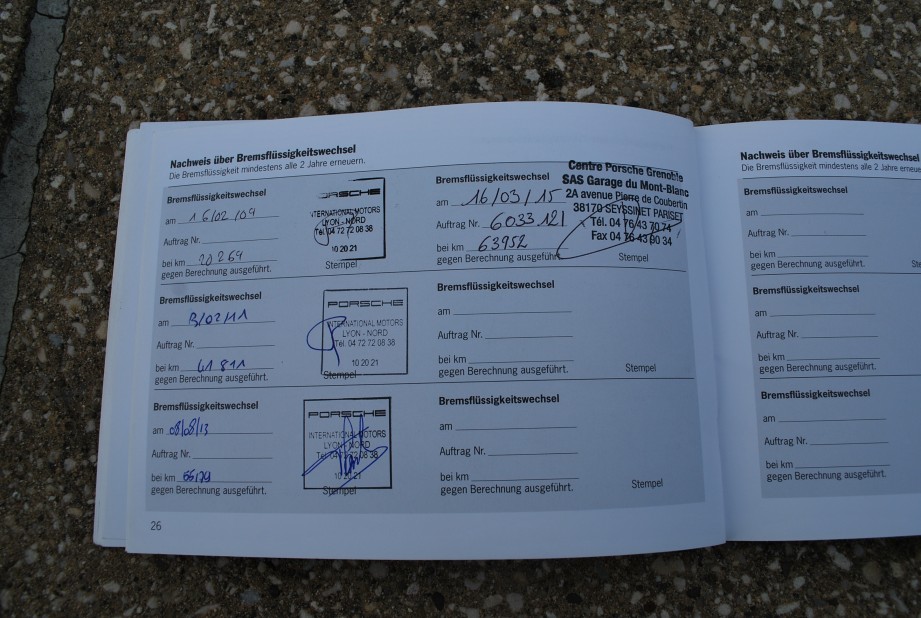 Nachweis über Bremsflüssigkeitswechsel
Die Bremsflüssigkeit mindestens alle 2 Jahre erneuern.
Bremsflüssigkeitswechsel
am 16/02/09
Auftrag Nr.
bei km 20269
gegen Berechnung ausgeführt.
PORSCHE
INTERNATIONAL MOTORS
LYON - NORD
Tél. 04 72 72 08 38
10 20 21
Stempel
Bremsflüssigkeitswechsel
am /02/11
Auftrag Nr.
bei km 41 811
gegen Berechnung ausgeführt.
PORSCHE
INTERNATIONAL MOTORS
LYON - NORD
Tél. 04 72 72 08 38
10 20 21
Stempel
Bremsflüssigkeitswechsel
am 08/08/13
Auftrag Nr.
bei km
gegen Berechnung ausgeführt.
PORSCHE
INTERNATIONAL MOTORS
LYON - NORD
Tél. 04 72 72 08 38
10 20 21
Stempel
26
Bremsflüssigkeitswechsel
am 16/03/15
Auftrag Nr. 6033121
bei km 63952
gegen Berechnung ausgeführt.
Centre Porsche Grenoble
SAS Garage du Mont-Blanc
2A avenue Pierre de Coubertin
38170 SEYSSINET PARISET
Tél. 04 76 43 70 74
Fax 04 76 43 90 34
Stempel
Bremsflüssigkeitswechsel
am
Auftrag Nr.
bei km
gegen Berechnung ausgeführt.
Stempel
Bremsflüssigkeitswechsel
am
Auftrag Nr.
bei km
gegen Berechnung ausgeführt.
Stempel
Nachweis über Bremsflüssigkeitswechsel
Die Bremsflüssigkeit mindestens alle 2 Jahre erneue
Bremsflüssigkeitswechsel
am
Auftrag Nr.
bei km
gegen Berechnung ausgeführt.
Ste
Bremsflüssigkeitswechsel
am
Auftrag Nr.
bei km
gegen Berechnung ausgeführt.
Bremsflüssigkeitswechsel
am
Auftrag Nr.
bei km
gegen Berechnung ausgeführt.